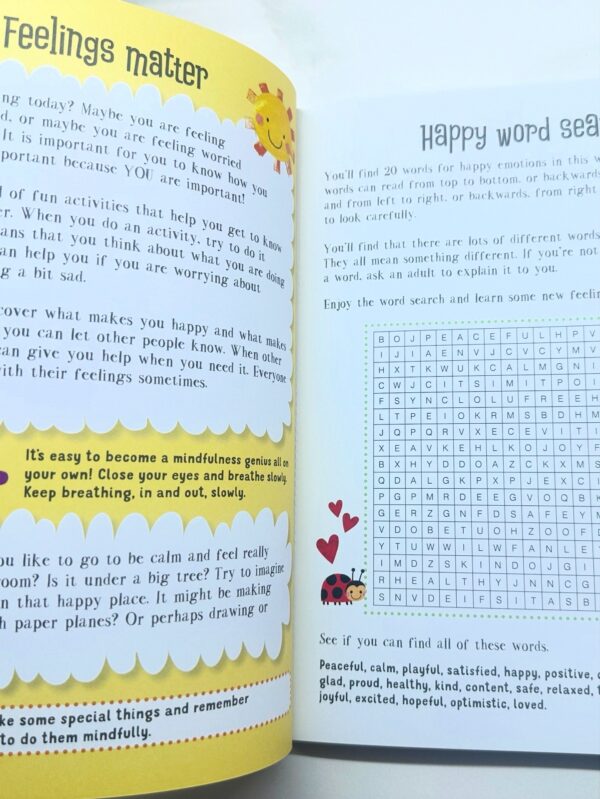 Feelings matter
ng today? Maybe you are feeling
d, or maybe you are feeling worried
It is important for you to know how you
portant because YOU are important!
d of fun activities that help you get to know
er. When you do an activity, try to do it
ans that you think about what you are doing
an help you if you are worrying about
g a bit sad.
cover what makes you happy and what makes
you can let other people know. When other
can give you help when you need it. Everyone
with their feelings sometimes.
It's easy to become a mindfulness genius all on
your own! Close your eyes and breathe slowly.
Keep breathing, in and out, slowly.
ou like to go to be calm and feel really
room? Is it under a big tree? Try to imagine
n that happy place. It might be making
h paper planes? Or perhaps drawing or
ke some special things and remember
to do them mindfully.
Happy word sea
You'll find 20 words for happy emotions in this w
words can read from top to bottom, or backwards
and from left to right, or backwards, from right
to look carefully.
You'll find that there are lots of different words
They all mean something different. If you're not
a word, ask an adult to explain it to you.
Enjoy the word search and learn some new feelin
B O J P E A C E F U L H P V
I J I A E N V J C V C Y M V
H X T K W U K C A L M G N I
C W J C I T S I M I T P O I
F S Y N C L O L U F R E E H
L T P E I O K R M S B D H M
J Q P Q R V X E C E V I T I
X E A V K E H L K O J O Y F
B X H Y D D O A Z C K X M S
Q D A L G K P X P J E X C I
P G P M R D E E G V O Q B K
G E R Z G N F D S A F E Y M
V D O B E T U O H Z O O F D
Y T U W W I L W F A N L E T
I M D Z S K I N D O J G I
R H E A L T H Y J N N C G
S N V D E I F S I T A S B
See if you can find all of these words.
Peaceful, calm, playful, satisfied, happy, positive,
glad, proud, healthy, kind, content, safe, relaxed,
joyful, excited, hopeful, optimistic, loved.